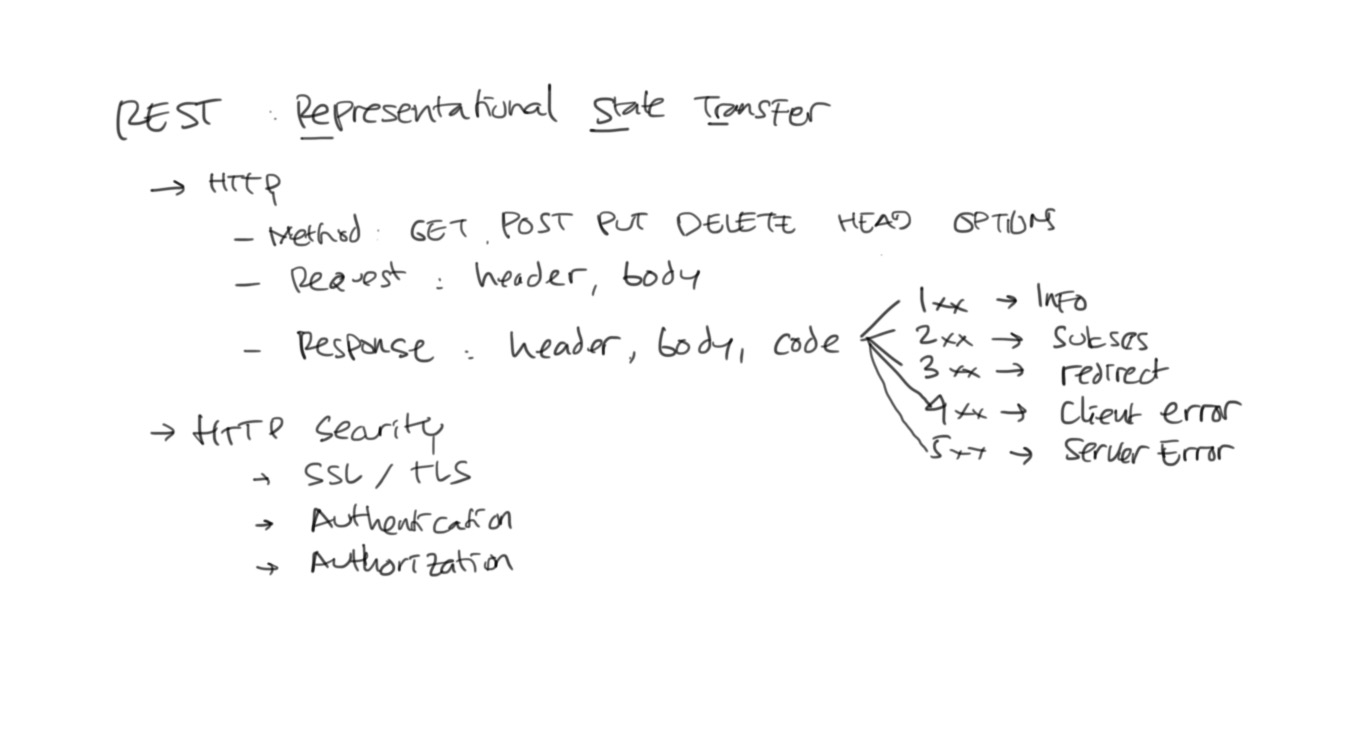 REST : Representational State Transfer
→ HTTP
- Method : GET POST PUT DELETE HEAD OPTIONS
- Request : header, body
- Response : header, body, code
1xx → Info
2xx → Sukses
3xx → redirect
4xx → Client error
5xx → Server Error
→ HTTP Security
→ SSL / TLS
→ Authentication
→ Authorization